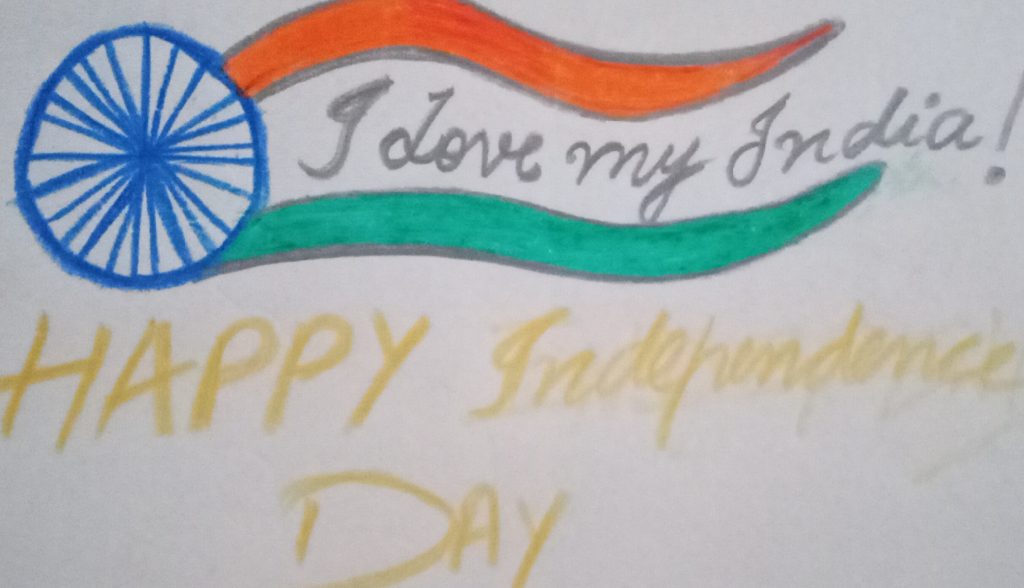 I Love my India!
HAPPY Independence
DAY